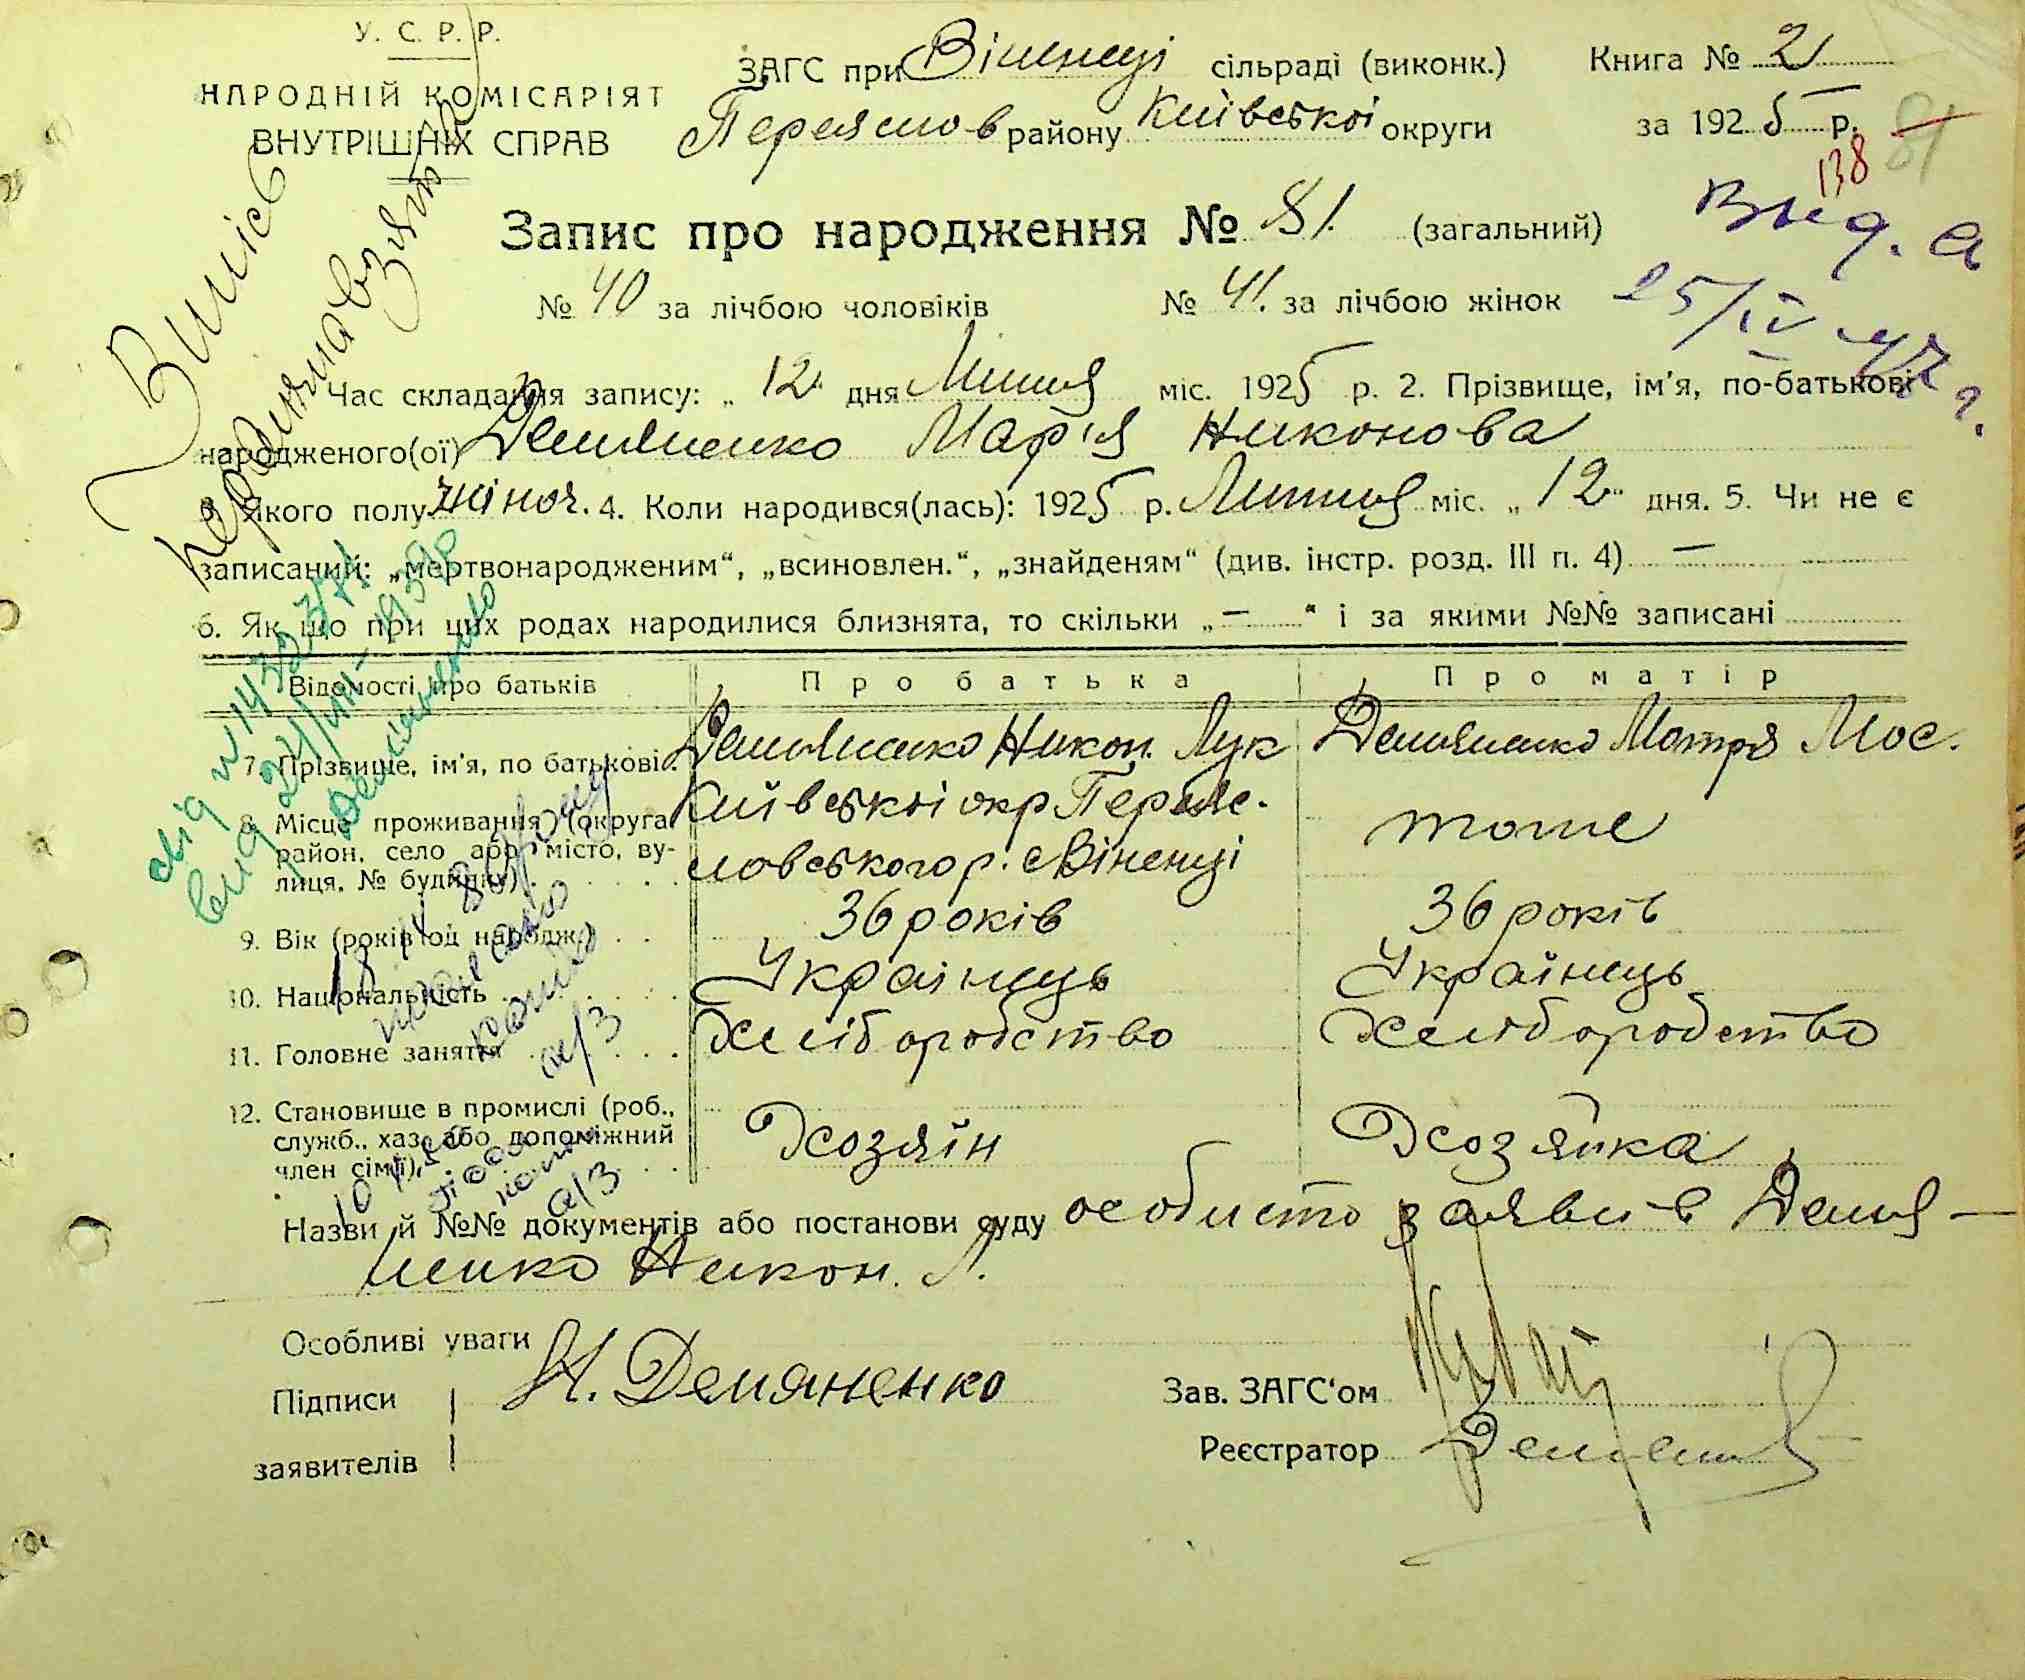 У. С. Р. Р.
НАРОДНІЙ КОМІСАРІЯТ
ВНУТРІШНІХ СПРАВ
ЗАГС при Віненці сільраді (виконк.)
Переяслов району Київської округи
Книга № 2
за 1925 р.
138 81
Запис про народження № 81. (загальний)
Выд. а
25/IV 47 г.
№ 40 за лічбою чоловіків № 41. за лічбою жінок
Час складання запису: „ 12 " дня Липня міс. 1925 р. 2. Прізвище, ім'я, по-батькові
народженого(ої) Демяненко Марія Никонова
3. Якого полу жіноч. 4. Коли народився(лась): 1925 р. Липня міс. „ 12 " дня. 5. Чи не є
записаний: „мертвонародженим“, „всиновлен.“, „знайденям“ (див. інстр. розд. III п. 4) —
6. Як що при цих родах народилися близнята, то скільки „ — “ і за якими №№ записані
Відомості про батьків Про батька Про матір
7. Прізвище, ім'я, по батькові. Демяненко Никон. Лук Демяненко Мотря Мос.
8. Місце проживання (округа, район, село або місто, ву-лиця, № будинку) Київської окр Переяс-
ловського р. с Віненці
тоже
9. Вік (років од народж.) 36 років 36 років
10. Національність Українець Українець
11. Головне заняття Хліборобство Хліборобство
12. Становище в промислі (роб.,
служб., хаз. або допоміжний
член сім'ї) Хозяїн Хозяйка
Назви й №№ документів або постанови суду особисто заявив Демя-
ненко Никон. Л.
Особливі уваги
Підписи Н. Демяненко Зав. ЗАГС'ом
заявителів Реєстратор